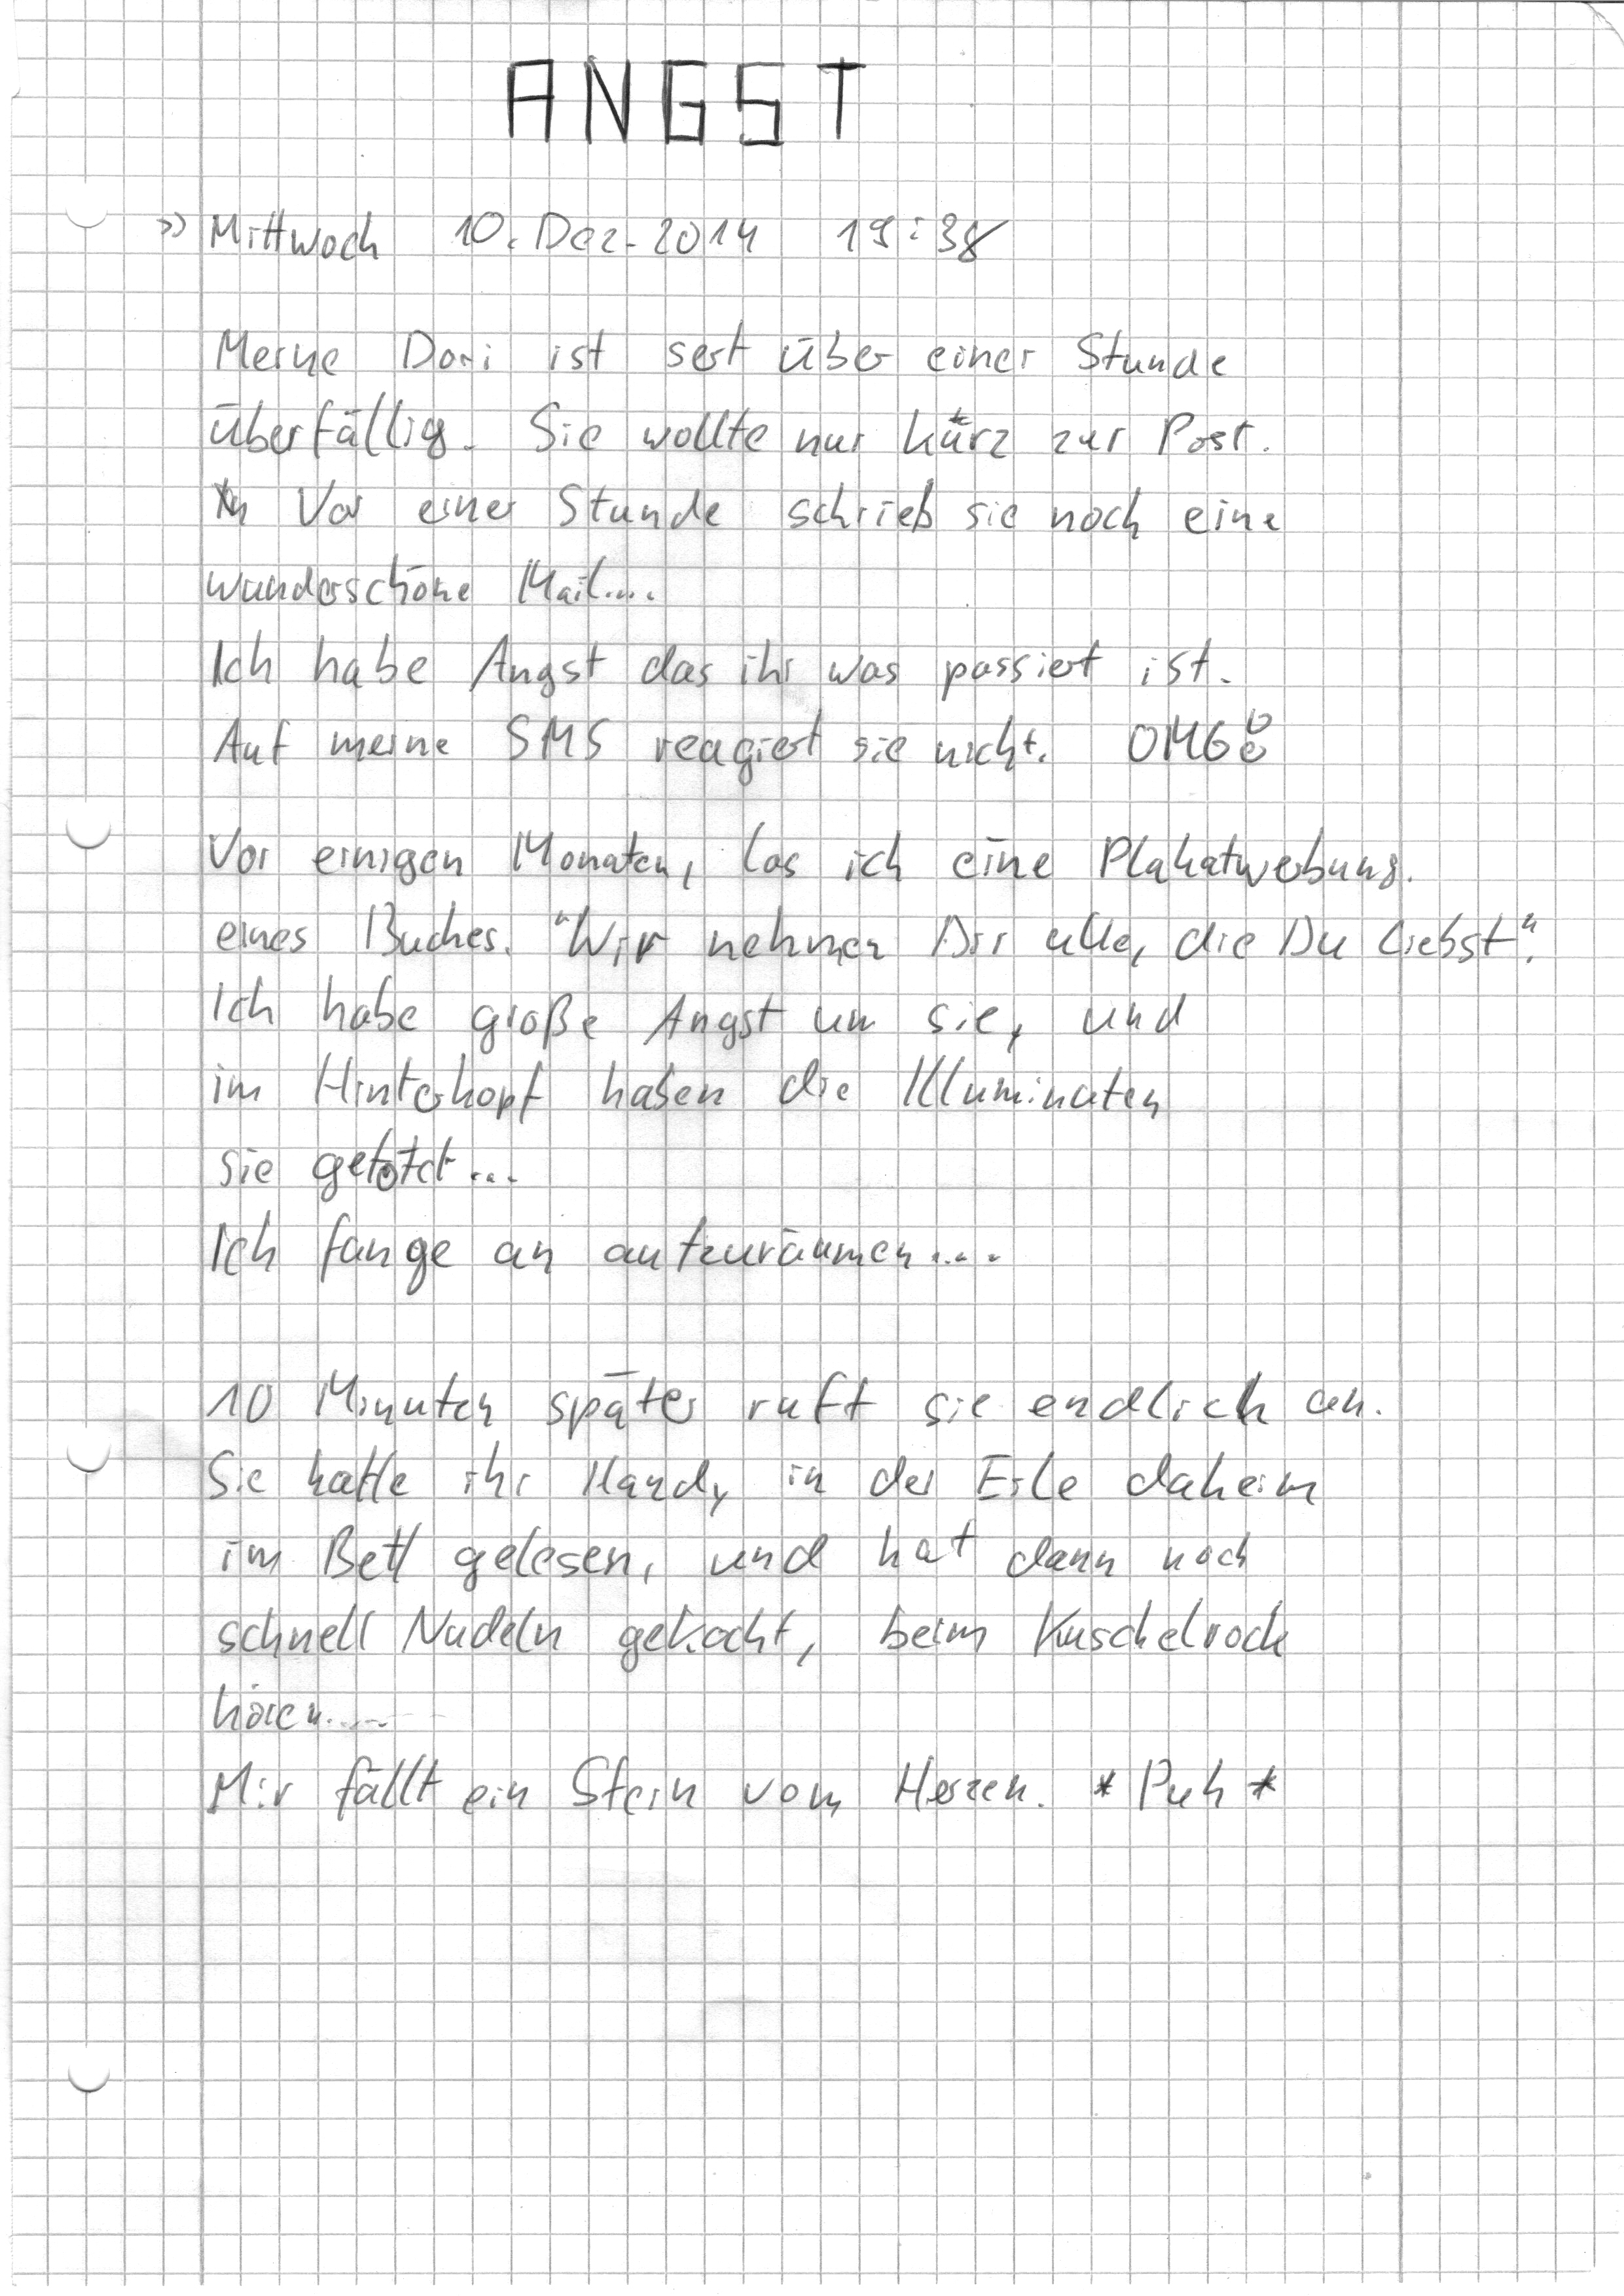 ANGST
» Mittwoch 10. Dez. 2014 19:38
Meine Dori ist seit über einer Stunde
überfällig. Sie wollte nur kurz zur Post.
Vor einer Stunde schrieb sie noch eine
wunderschöne Mail....
Ich habe Angst das ihr was passiert ist.
Auf meine SMS reagiert sie nicht. OMG
Vor einigen Monaten, las ich eine Plakatwerbung.
eines Buches. "Wir nehmen Dir alle, die Du liebst".
Ich habe große Angst um sie, und
im Hinterkopf haben die Illuminaten
sie getötet...
Ich fange an aufzuräumen....
10 Minuten später ruft sie endlich an.
Sie hatte ihr Handy in der Eile daheim
im Bett gelesen, und hat dann noch
schnell Nudeln gekocht, beim Kuschelrock
hören.....
Mir fällt ein Stein vom Herzen. *Puh*